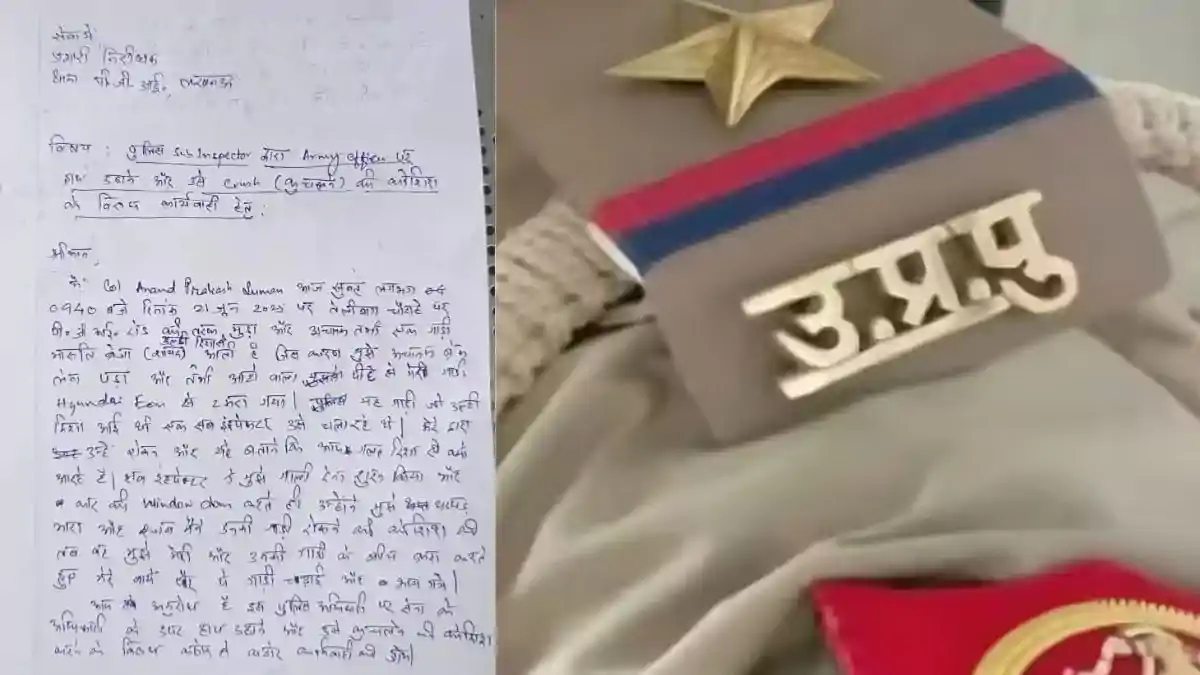 सेवा में
प्रभारी निरीक्षक
थाना पी.जी.आई., लखनऊ
विषय : पुलिस Sub Inspector द्वारा Army officer पर
हाथ उठाने और उसे crush (कुचलने) की कोशिश
के विरुद्ध कार्यवाही हेतु :
श्रीमान,
मैं Col Anand Prakash Suman आज सुबह लगभग
0940 बजे दिनांक 21 जून 2025 पर तेलीबाग चौराहे पर
पी.जी.आई. रोड की तरफ मुड़ा और अचानक तभी एक गाड़ी
उल्टी दिशा से
मारुति ब्रेजा आती है जिस कारण मुझे अचानक ब्रेक
लेना पड़ा और तभी ऑटो वाला पीछे से मेरी गाड़ी
Hyundai Eon से टकरा गया। यह गाड़ी जो उल्टी
दिशा आई थी एक सब इंस्पेक्टर उसे चला रहे थे। मेरे द्वारा
उन्हें रोकने और यह बताने कि आप गलत दिशा से क्यों
आ रहे हैं। सब इंस्पेक्टर ने मुझे गाली देना शुरू किया और
कार की window down करते ही उन्होंने मुझे थप्पड़
मारा और मैंने उनकी गाड़ी रोकने की कोशिश की
तब वह मुझे मेरी और उनकी गाड़ी के बीच क्रश करते
हुए मेरे बायें पैर पे गाड़ी चढ़ाई और भाग गये।
आप से अनुरोध है इस पुलिस अधिकारी पर सेना के
अधिकारी के ऊपर हाथ उठाने और उसे कुचलने की कोशिश
करने के विरुद्ध कठोर से कठोर कार्यवाही की जाए।
उ.प्र.पु